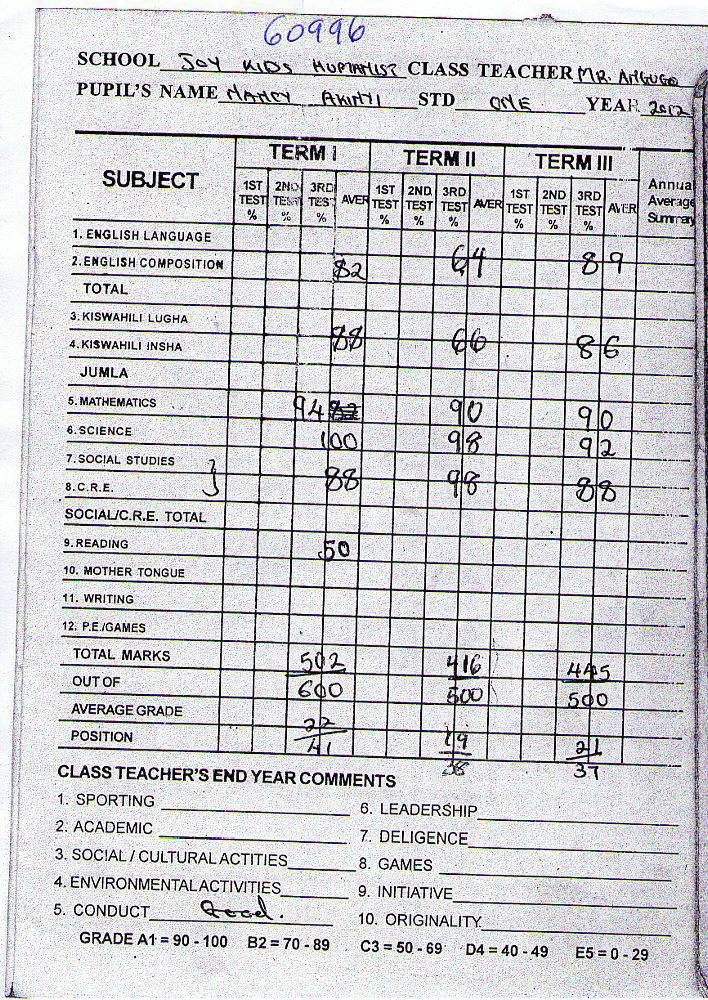 60996
SCHOOL JOY KIDS HUMANIST CLASS TEACHER MR. ANGUGO
PUPIL'S NAME NANCY AKINYI STD ONE YEAR 2012
SUBJECT TERM I TERM II TERM III Annual Average Summary
1ST TEST % 2ND TEST % 3RD TEST % AVER 1ST TEST % 2ND TEST % 3RD TEST % AVER 1ST TEST % 2ND TEST % 3RD TEST % AVER
1. ENGLISH LANGUAGE
2. ENGLISH COMPOSITION 82 64 89
TOTAL
3. KISWAHILI LUGHA
4. KISWAHILI INSHA 88 66 86
JUMLA
5. MATHEMATICS 94 90 90
6. SCIENCE 100 98 92
7. SOCIAL STUDIES
8. C.R.E. 88 98 88
SOCIAL/C.R.E. TOTAL
9. READING 50
10. MOTHER TONGUE
11. WRITING
12. P.E./GAMES
TOTAL MARKS 502 416 445
OUT OF 600 500 500
AVERAGE GRADE
POSITION 22/41 19/38 21/37
CLASS TEACHER'S END YEAR COMMENTS
1. SPORTING 6. LEADERSHIP
2. ACADEMIC 7. DELIGENCE
3. SOCIAL / CULTURAL ACTITIES 8. GAMES
4. ENVIRONMENTAL ACTIVITIES 9. INITIATIVE
5. CONDUCT Good. 10. ORIGINALITY
GRADE A1 = 90 - 100 B2 = 70 - 89 C3 = 50 - 69 D4 = 40 - 49 E5 = 0 - 29